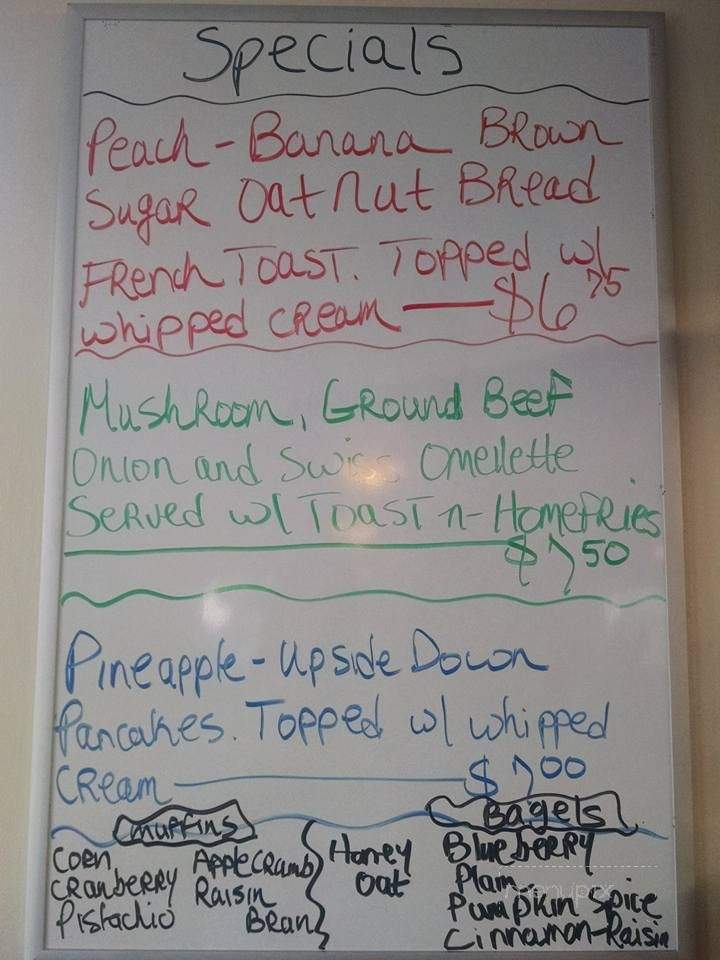 Specials
Peach - Banana Brown
Sugar Oat Nut Bread
French Toast. Topped w/
whipped cream — $6 75
Mushroom, Ground Beef
Onion and Swiss Omellette
Served w/ Toast n- Homefries
$7 50
Pineapple - Upside Down
Pancakes. Topped w/ whipped
Cream — $7 00
Muffins
Corn
Cranberry
Pistachio
Applecramb
Raisin
Bran
Bagels
Honey
Oat
Blueberry
Plain
Pumpkin Spice
Cinnamon-Raisin
menupix